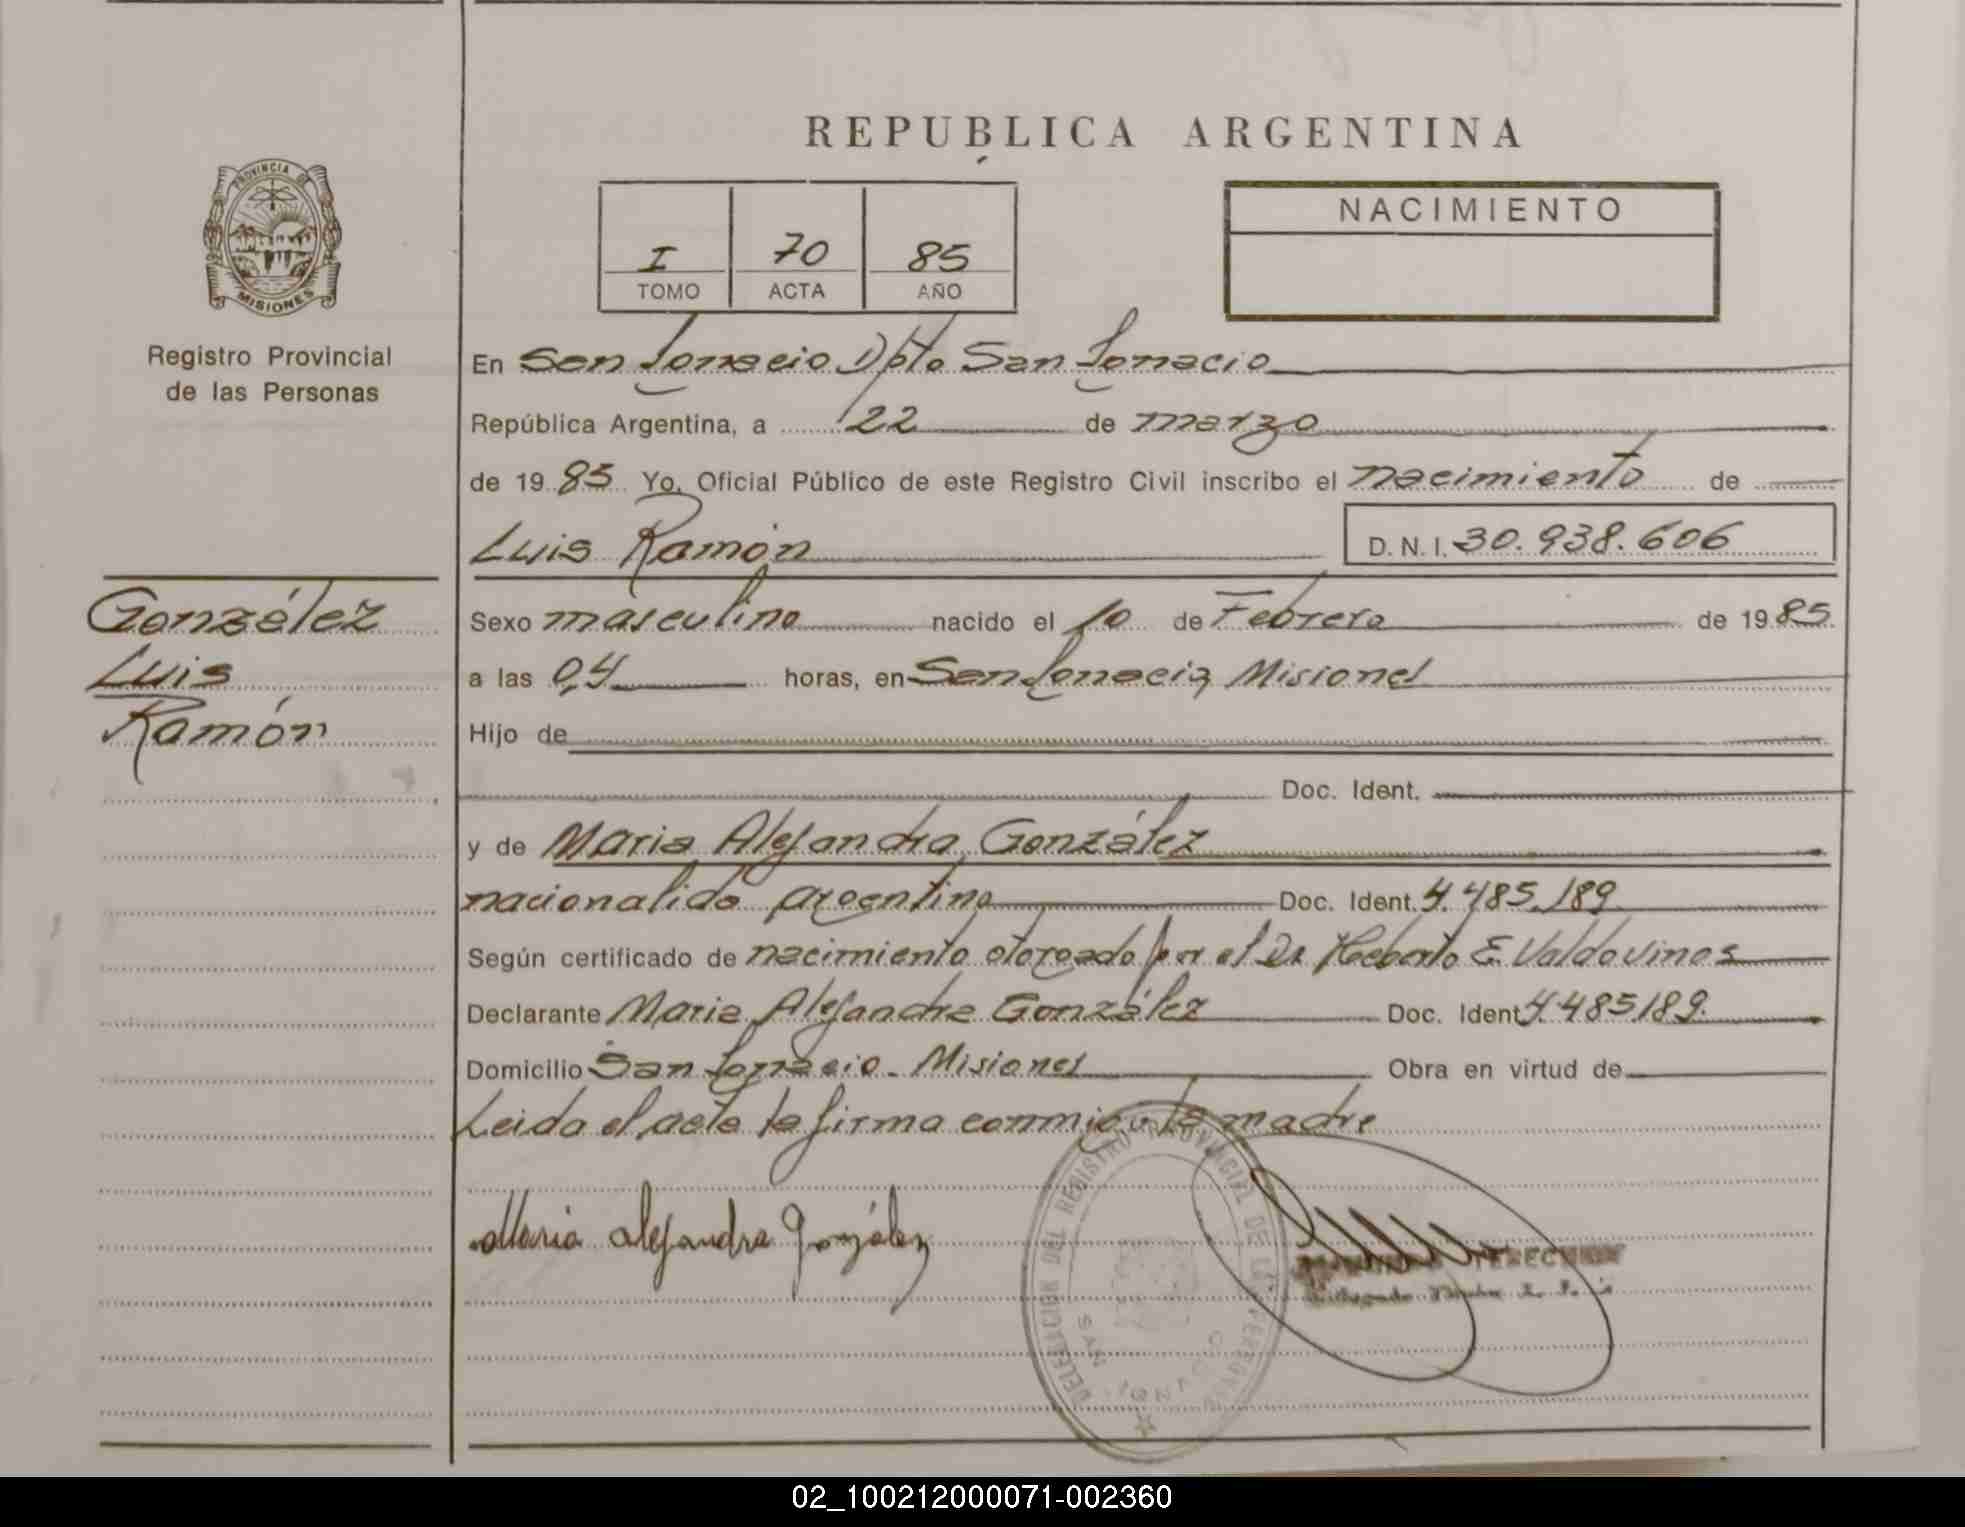 REPUBLICA ARGENTINA
PROVINCIA DE MISIONES
Registro Provincial
de las Personas
I 70 85
TOMO ACTA AÑO
NACIMIENTO
En San Ignacio Dpto San Ignacio
República Argentina, a 22 de marzo
de 1985 Yo, Oficial Público de este Registro Civil inscribo el nacimiento de
Luis Ramón D.N.I. 30.938.606
González
Luis
Ramón
Sexo masculino nacido el 10 de Febrero de 1985
a las 04 horas, en San Ignacio, Misiones
Hijo de
Doc. Ident.
y de Maria Alejandra González
nacionalida argentina Doc. Ident. 4.485.189
Según certificado de nacimiento otorgado por el Dr Heberto E. Valdovinos
Declarante Maria Alejandra González Doc. Ident 4.485189.
Domicilio San Ignacio. Misiones Obra en virtud de
Leida el acta la firma conmigo la madre
Maria Alejandra González
DELEGACION DEL REGISTRO PROVINCIAL DE LAS PERSONAS
SAN IGNACIO
02_100212000071-002360